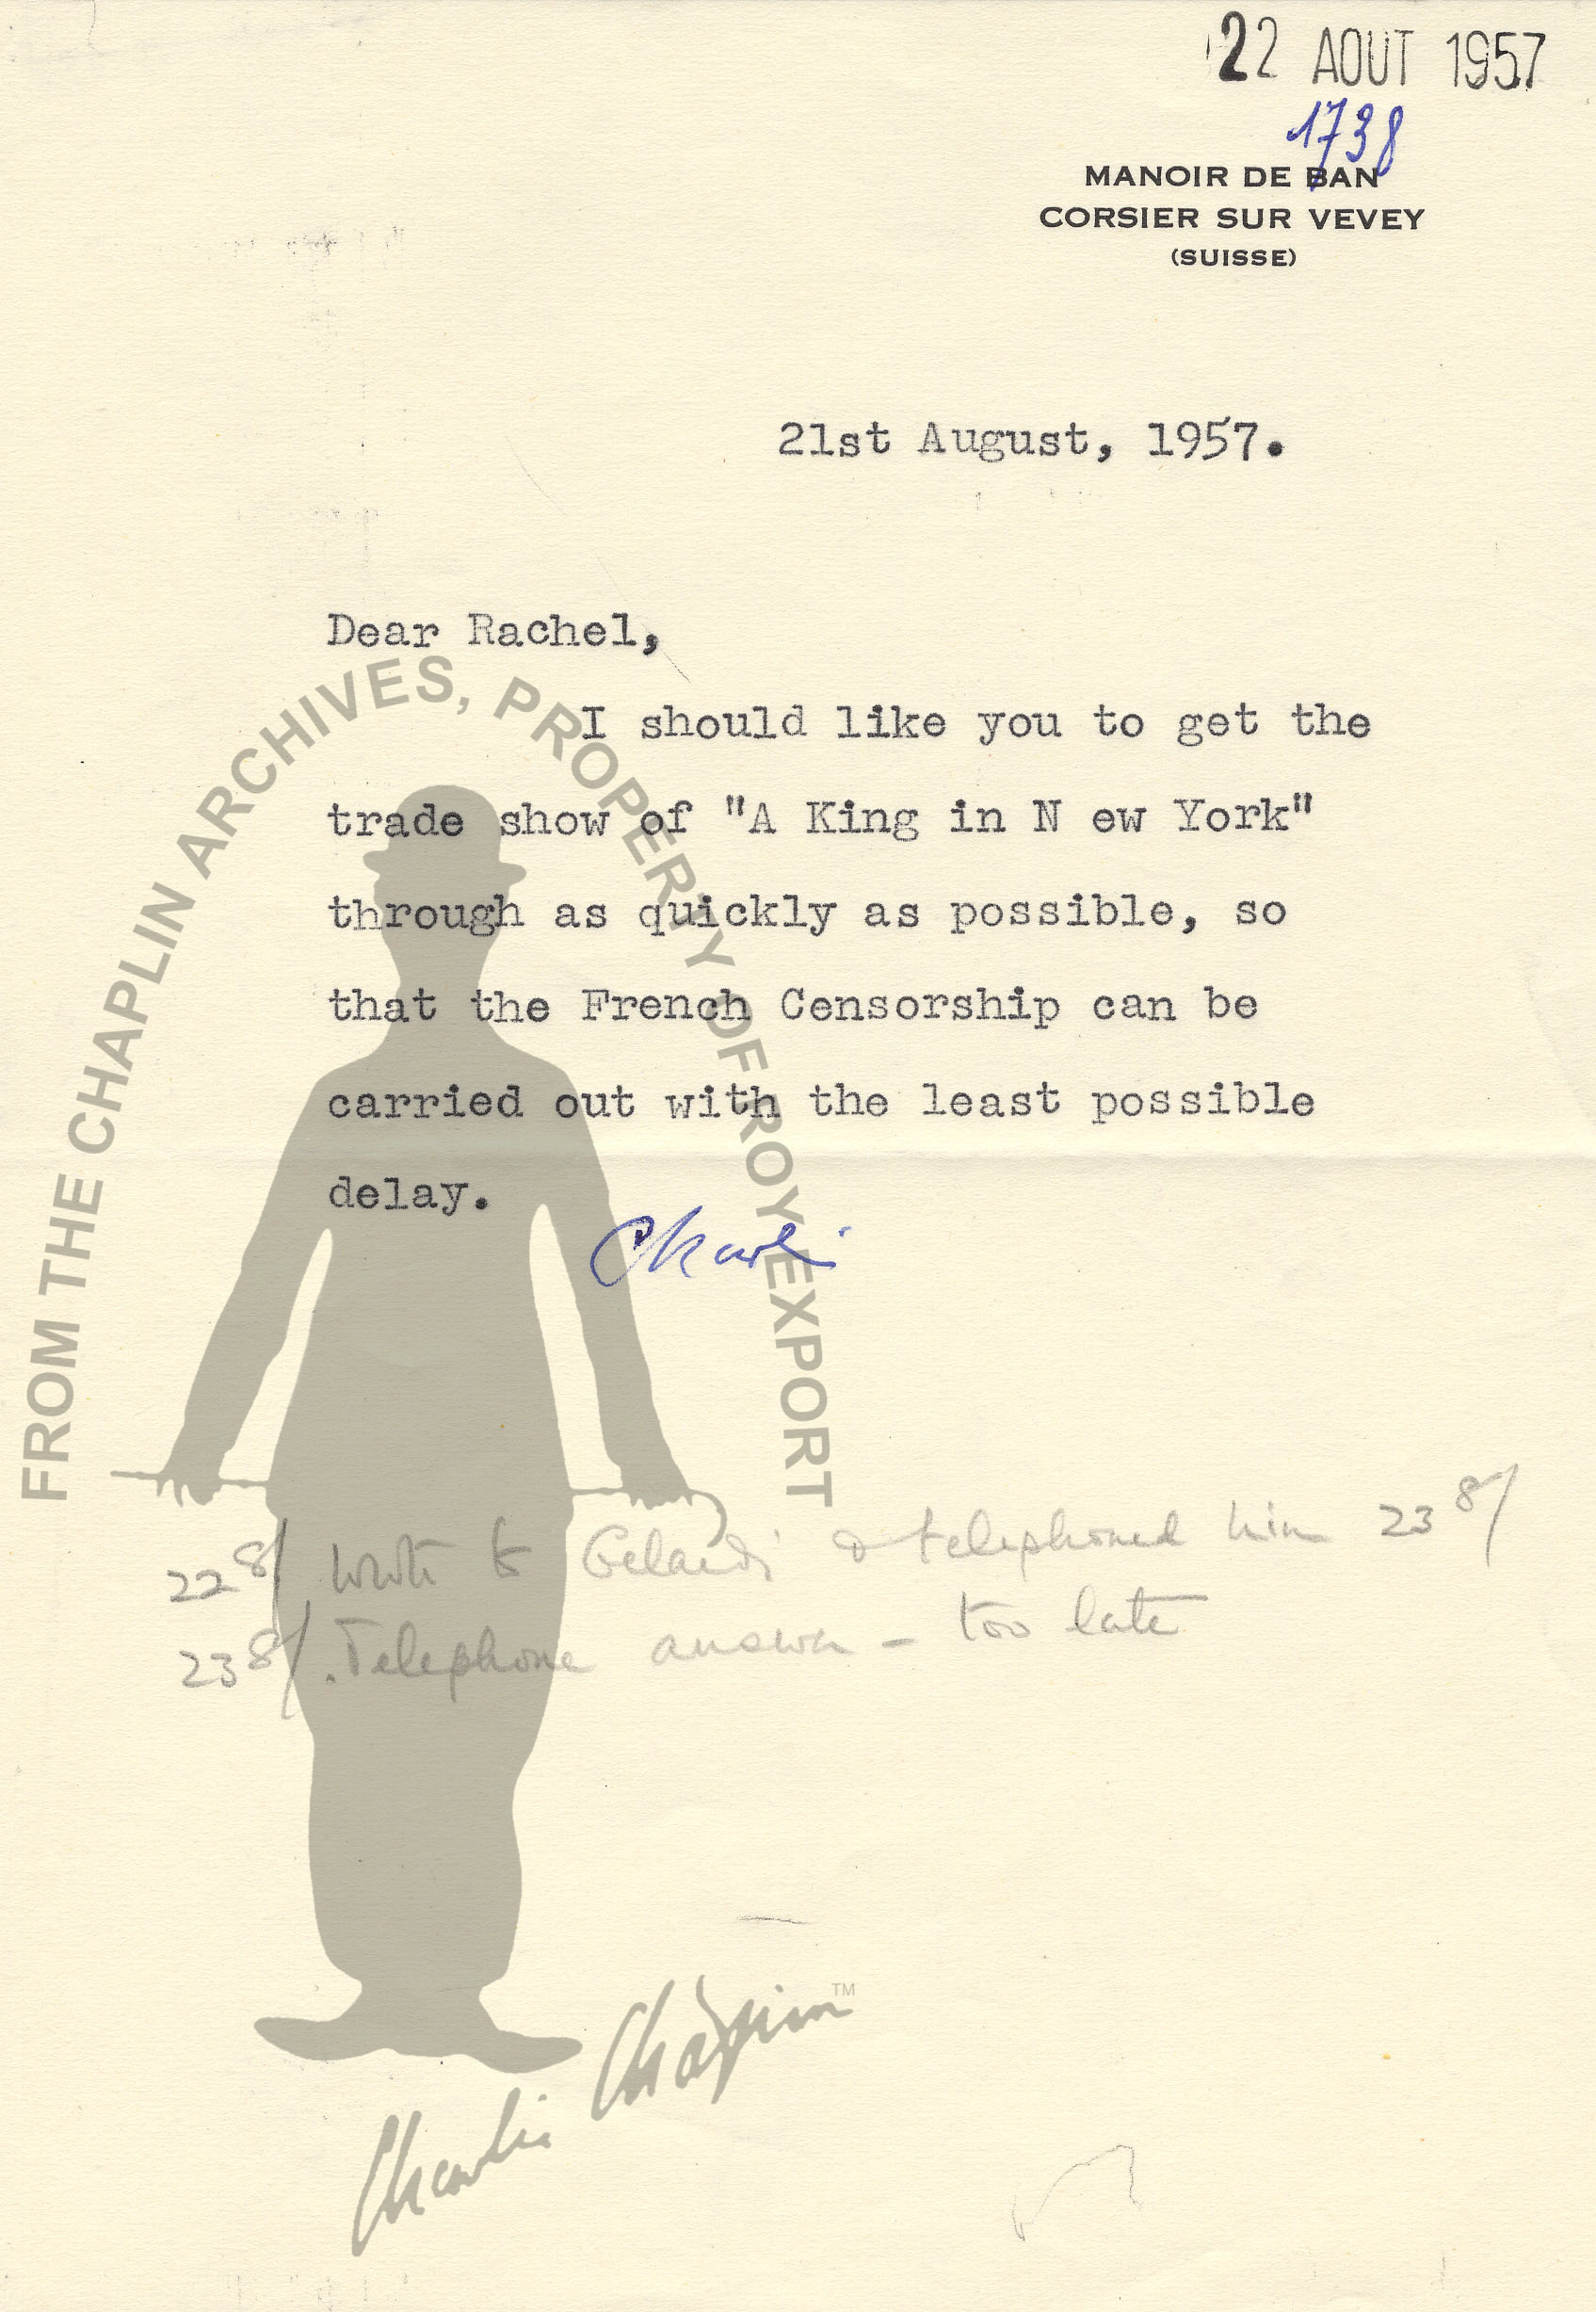 22 AOUT 1957
1738
MANOIR DE BAN
CORSIER SUR VEVEY
(SUISSE)
21st August, 1957.
Dear Rachel,
I should like you to get the
trade show of "A King in N ew York"
through as quickly as possible, so
that the French Censorship can be
carried out with the least possible
delay.
Charlie
22 8/ wrote to Gelardi & telephoned him 23 8/
23 8/. Telephone answer - too late
FROM THE CHAPLIN ARCHIVES, PROPERTY OF ROY EXPORT
Charlie Chaplin TM